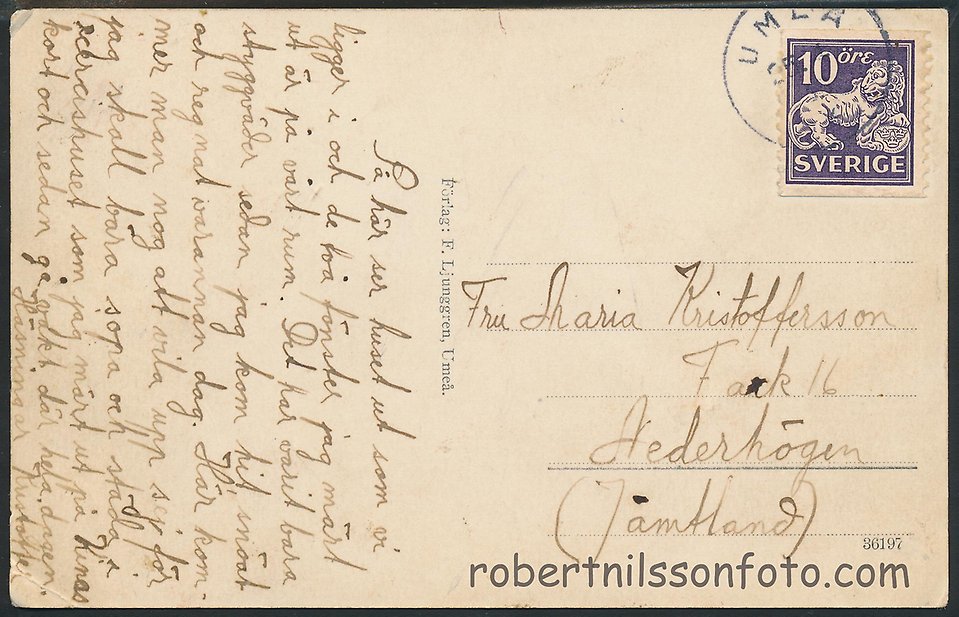 Så här ser huset ut som vi
ligger i och de två fönster jag märkt
ut är på vårt rum. Det har varit bara
styggväder sedan jag kom hit snöat
och regnat varannan dag. Här kom-
mer man nog att vila upp sej för
jag skall bara sopa och städa i
som jag märkt ut på
kort och sedan gå godkt där hela dagen.
Hälsningar Kristoffer
Förlag: F. Ljunggren, Umeå.
UMEÅ
10 öre
SVERIGE
Fru Maria Kristoffersson
Fack 16
Nederhögen
(Jämtland)
36197
robertnilssonfoto.com